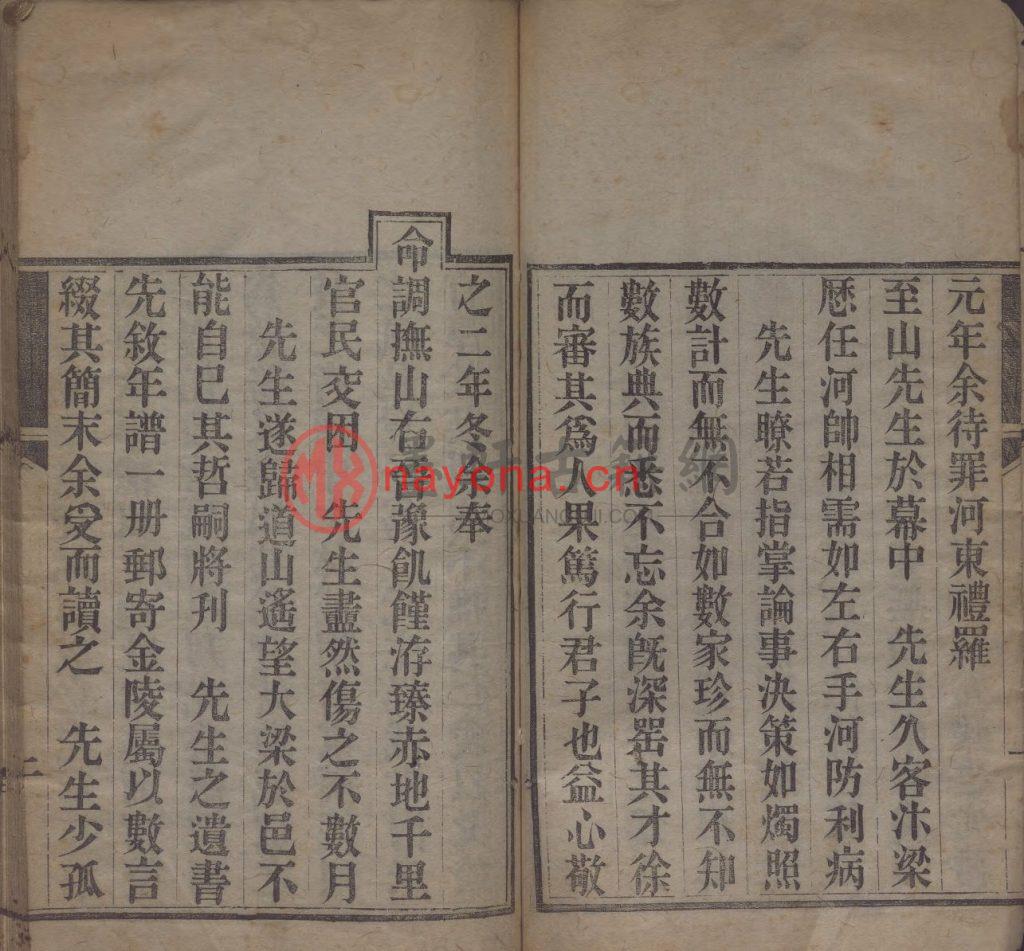 元年余待罪河東禮羅
至山先生於幕中　先生久客汴梁
歷任河帥相需如左右手河防利病
先生瞭若指掌論事決策如燭照
數計而無不合如數家珍而無不知
數族典而悉不忘余既深噐其才徐
而審其爲人果篤行君子也益心敬
之二年冬余奉
命調撫山右晋豫飢饉洊臻赤地千里
官民交困　先生盡然傷之不數月
先生遂歸道山遙望大梁於邑不
能自已其哲嗣將刋　先生之遺書
先敘年譜一册郵寄金陵屬以數言
綴其簡末余受而讀之　先生少孤
二
nayona.cn